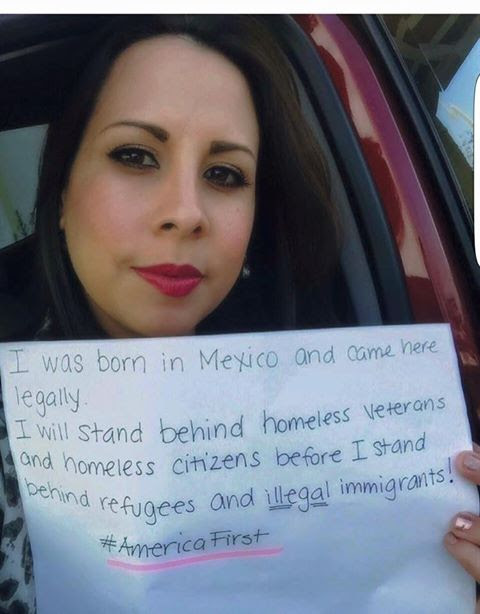 I was born in Mexico and came here
legally.
I will stand behind homeless veterans
and homeless citizens before I stand
behind refugees and illegal immigrants!
#AmericaFirst